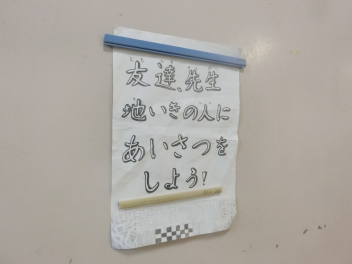 友達、先生
地いきの人に
あいさつを
しよう!